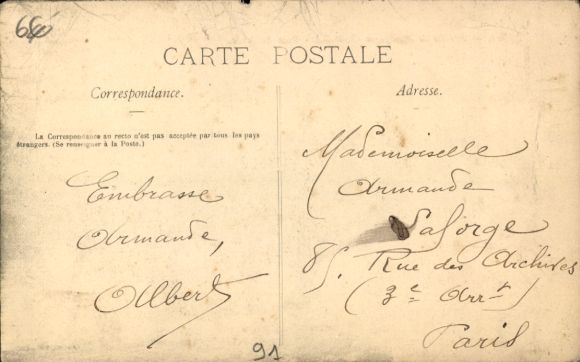 CARTE POSTALE
Correspondance.
La Correspondance au recto n'est pas acceptée par tous les pays
étrangers. (Se renseigner à la Poste.)
Embrasse
Armande,
Albert
91
Adresse.
Mademoiselle
Armande
Laforge
85, Rue des Archives
(3e Arrt)
Paris